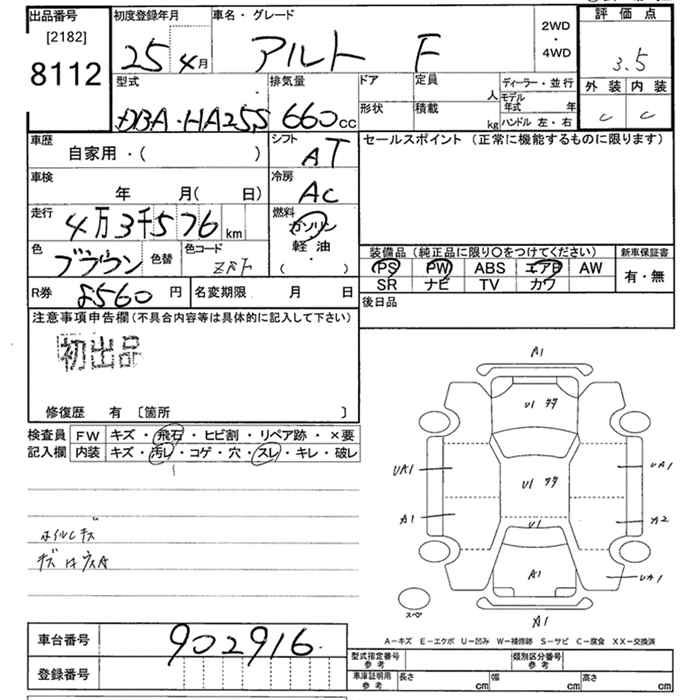 出品番号
[2182]
8112
初度登録年月
25年4月
車名・グレード
アルト F
2WD
・
4WD
評価点
3.5
外装 内装
C C
型式
DBA-HA25S
排気量
660cc
ドア
定員
人
形状
積載
kg
ディーラー・並行
モデル年式 年
ハンドル 左・右
車歴
自家用・( )
シフト
AT
セールスポイント(正常に機能するものに限ります)
車検
年 月( 日)
冷房
AC
走行
4万3千576km
燃料
ガソリン
軽油
・
( )
色
ブラウン
色替
色コード
ZRT
装備品(純正品に限り○をつけてください)
PS PW ABS エアB AW
SR ナビ TV カワ
新車保証書
有・無
R券
8560円
名変期限 月 日
後日品
注意事項申告欄(不具合内容等は具体的に記入して下さい)
初出品
修復歴 有 〔箇所 〕
検査員記入欄
FW キズ・飛石・ヒビ割・リペア跡・×要
内装 キズ・汚レ・コゲ・穴・スレ・キレ・破レ
ホイルキズ
A1
U1
U1
UA1
UA1
A1
U1
A2
A1
UA1
スペ
A1
A-キズ E-エクボ U-凹み W-補修跡 S-サビ C-腐食 XX-交換済
車台番号
902916
登録番号
型式指定番号
参考
類別区分番号
参考
車庫証明用
参考
長さ cm
幅 cm
高さ cm